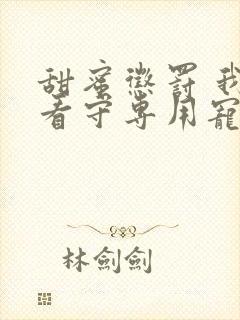 甜蜜懲罰我
看守專用寵
林劍劍